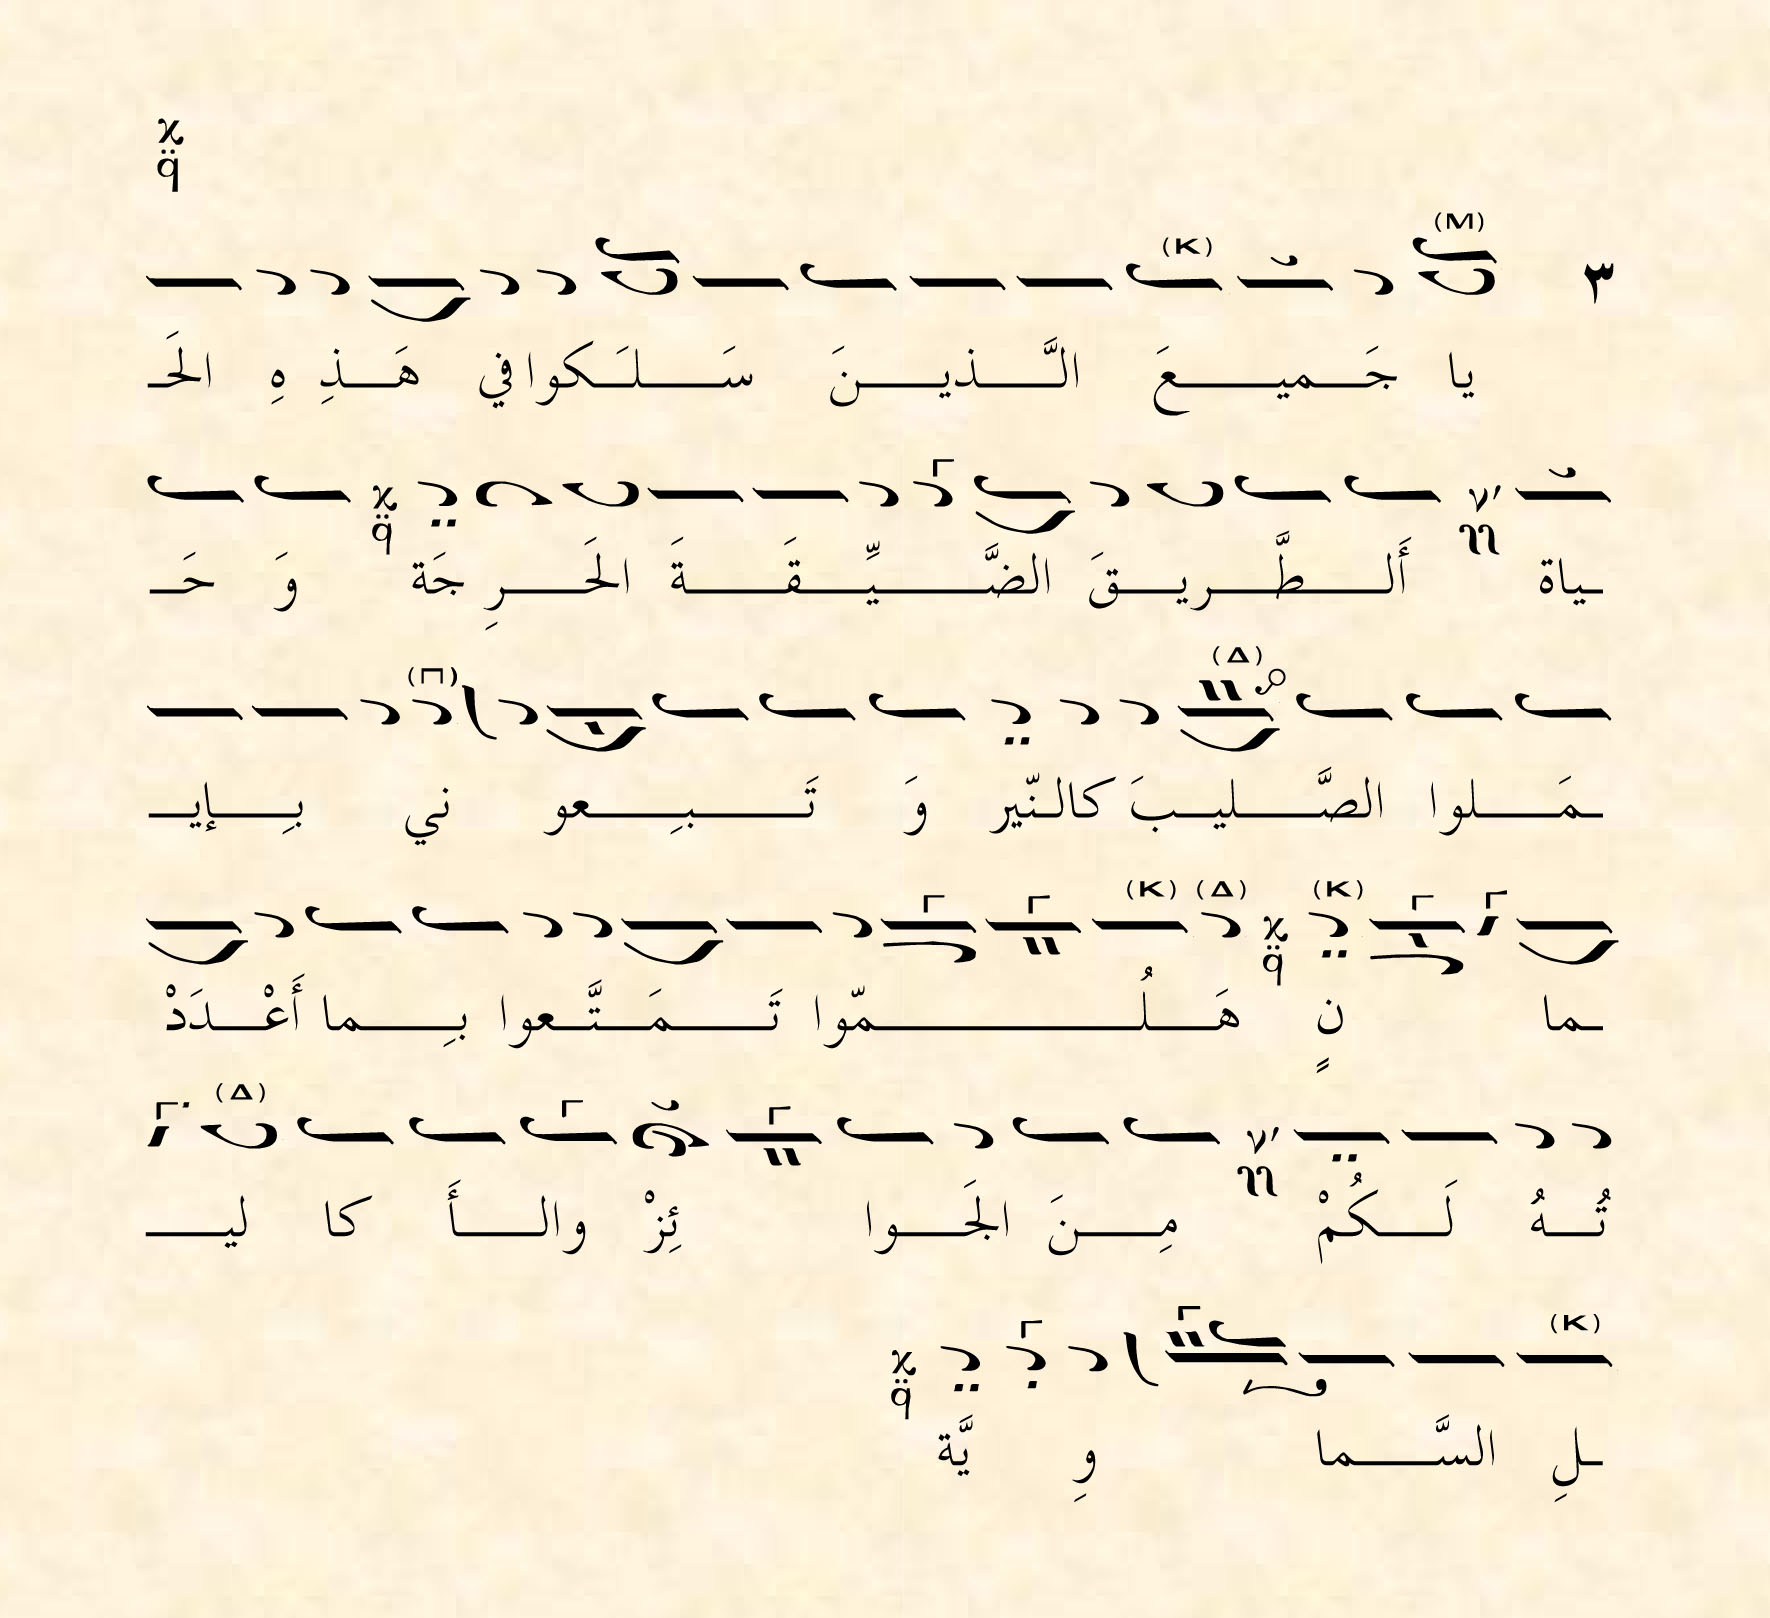 ϰ
q̈
(M) (K)
٣
يا جَـميـعَ الَّـذيـنَ سَـلَـكوا في هَـذِ هِ الحَـ
ν′ ϰ
q̈
ـياة أَلـطَّـريـقَ الضَّـيِّـقَـةَ الحَـرِ جَة وَ حَـ
(Δ) (Π)
ـمَـلوا الصَّـليـبَ كالـنّير وَ تَـبِـعو ني بِـإيـ
(K) (Δ) (K)
ϰ
q̈
ـما نٍ هَـلُـمّوا تَـمَـتَّـعوا بِـما أَعْـدَدْ
(Δ)
ν′
تُـهُ لَـكُمْ مِـنَ الجَـوا ئِزْ والـأَ كا ليـ
(K)
ϰ
q̈
ـلِ السَّـما وِ يَّة